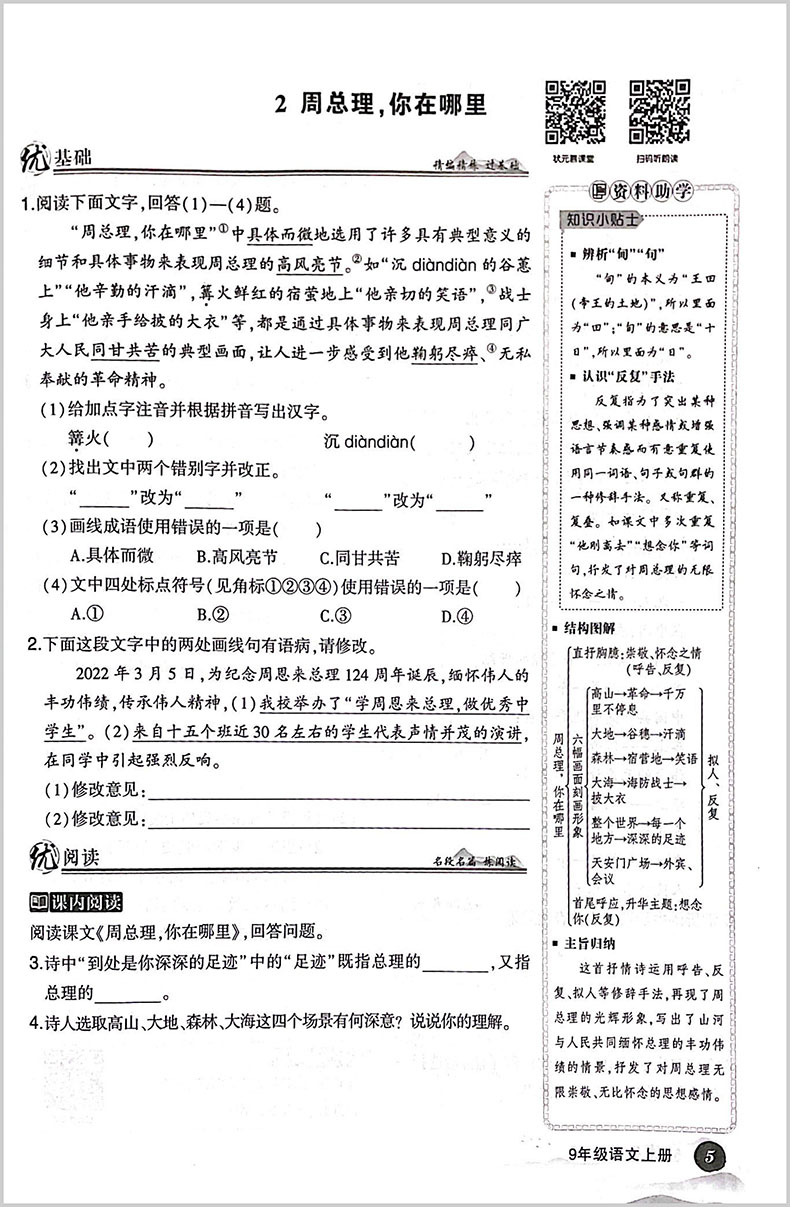 2 周总理,你在哪里
状元慕课堂
扫码听朗读
优基础
精编精练 过基础
1.阅读下面文字,回答(1)—(4)题。
“周总理,你在哪里”①中具体而微地选用了许多具有典型意义的
细节和具体事物来表现周总理的高风亮节。②如“沉 diàndiàn 的谷葸
上”“他辛勤的汗滴”,篝火鲜红的宿萤地上“他亲切的笑语”,③战士
身上“他亲手给披的大衣”等,都是通过具体事物来表现周总理同广
大人民同甘共苦的典型画面,让人进一步感受到他鞠躬尽瘁、④无私
奉献的革命精神。
(1)给加点字注音并根据拼音写出汉字。
篝火( ) 沉 diàndiàn( )
(2)找出文中两个错别字并改正。
“______”改为“______” “______”改为“______”
(3)画线成语使用错误的一项是( )
A.具体而微 B.高风亮节 C.同甘共苦 D.鞠躬尽瘁
(4)文中四处标点符号(见角标①②③④)使用错误的一项是( )
A.① B.② C.③ D.④
2.下面这段文字中的两处画线句有语病,请修改。
2022 年 3 月 5 日,为纪念周恩来总理 124 周年诞辰,缅怀伟人的
丰功伟绩,传承伟人精神,(1)我校举办了“学周恩来总理,做优秀中
学生”。(2)来自十五个班近 30 名左右的学生代表声情并茂的演讲,
在同学中引起强烈反响。
(1)修改意见:
(2)修改意见:
优阅读
名段名篇 练阅读
课内阅读
阅读课文《周总理,你在哪里》,回答问题。
3.诗中“到处是你深深的足迹”中的“足迹”既指总理的______,又指
总理的______。
4.诗人选取高山、大地、森林、大海这四个场景有何深意？说说你的理解。
资料助学
知识小贴士
■ 辨析“甸”“旬”
“甸”的本义为“王田
(帝王的土地)”,所以里面
为“田”;“旬”的意思是“十
日”,所以里面为“日”。
■ 认识“反复”手法
反复指为了突出某种
思想、强调某种感情或增强
语言节奏感而有意重复使
用同一词语、句子或句群的
一种修辞手法。又称重复、
复叠。如课文中多次重复
“他刚离去”“想念你”等词
句,抒发了对周总理的无限
怀念之情。
■ 结构图解
周总理,你在哪里
直抒胸臆:崇敬、怀念之情
(呼告、反复)
六幅画面刻画形象
高山→革命→千万
里不停息
大地→谷穗→汗滴
森林→宿营地→笑语
大海→海防战士→
披大衣
整个世界→每一个
地方→深深的足迹
天安门广场→外宾、
会议
拟人、反复
首尾呼应,升华主题:想念
你(反复)
■ 主旨归纳
这首抒情诗运用呼告、反
复、拟人等修辞手法,再现了周
总理的光辉形象,写出了山河
与人民共同缅怀总理的丰功伟
绩的情景,抒发了对周总理无
限崇敬、无比怀念的思想感情。
9年级语文上册 5